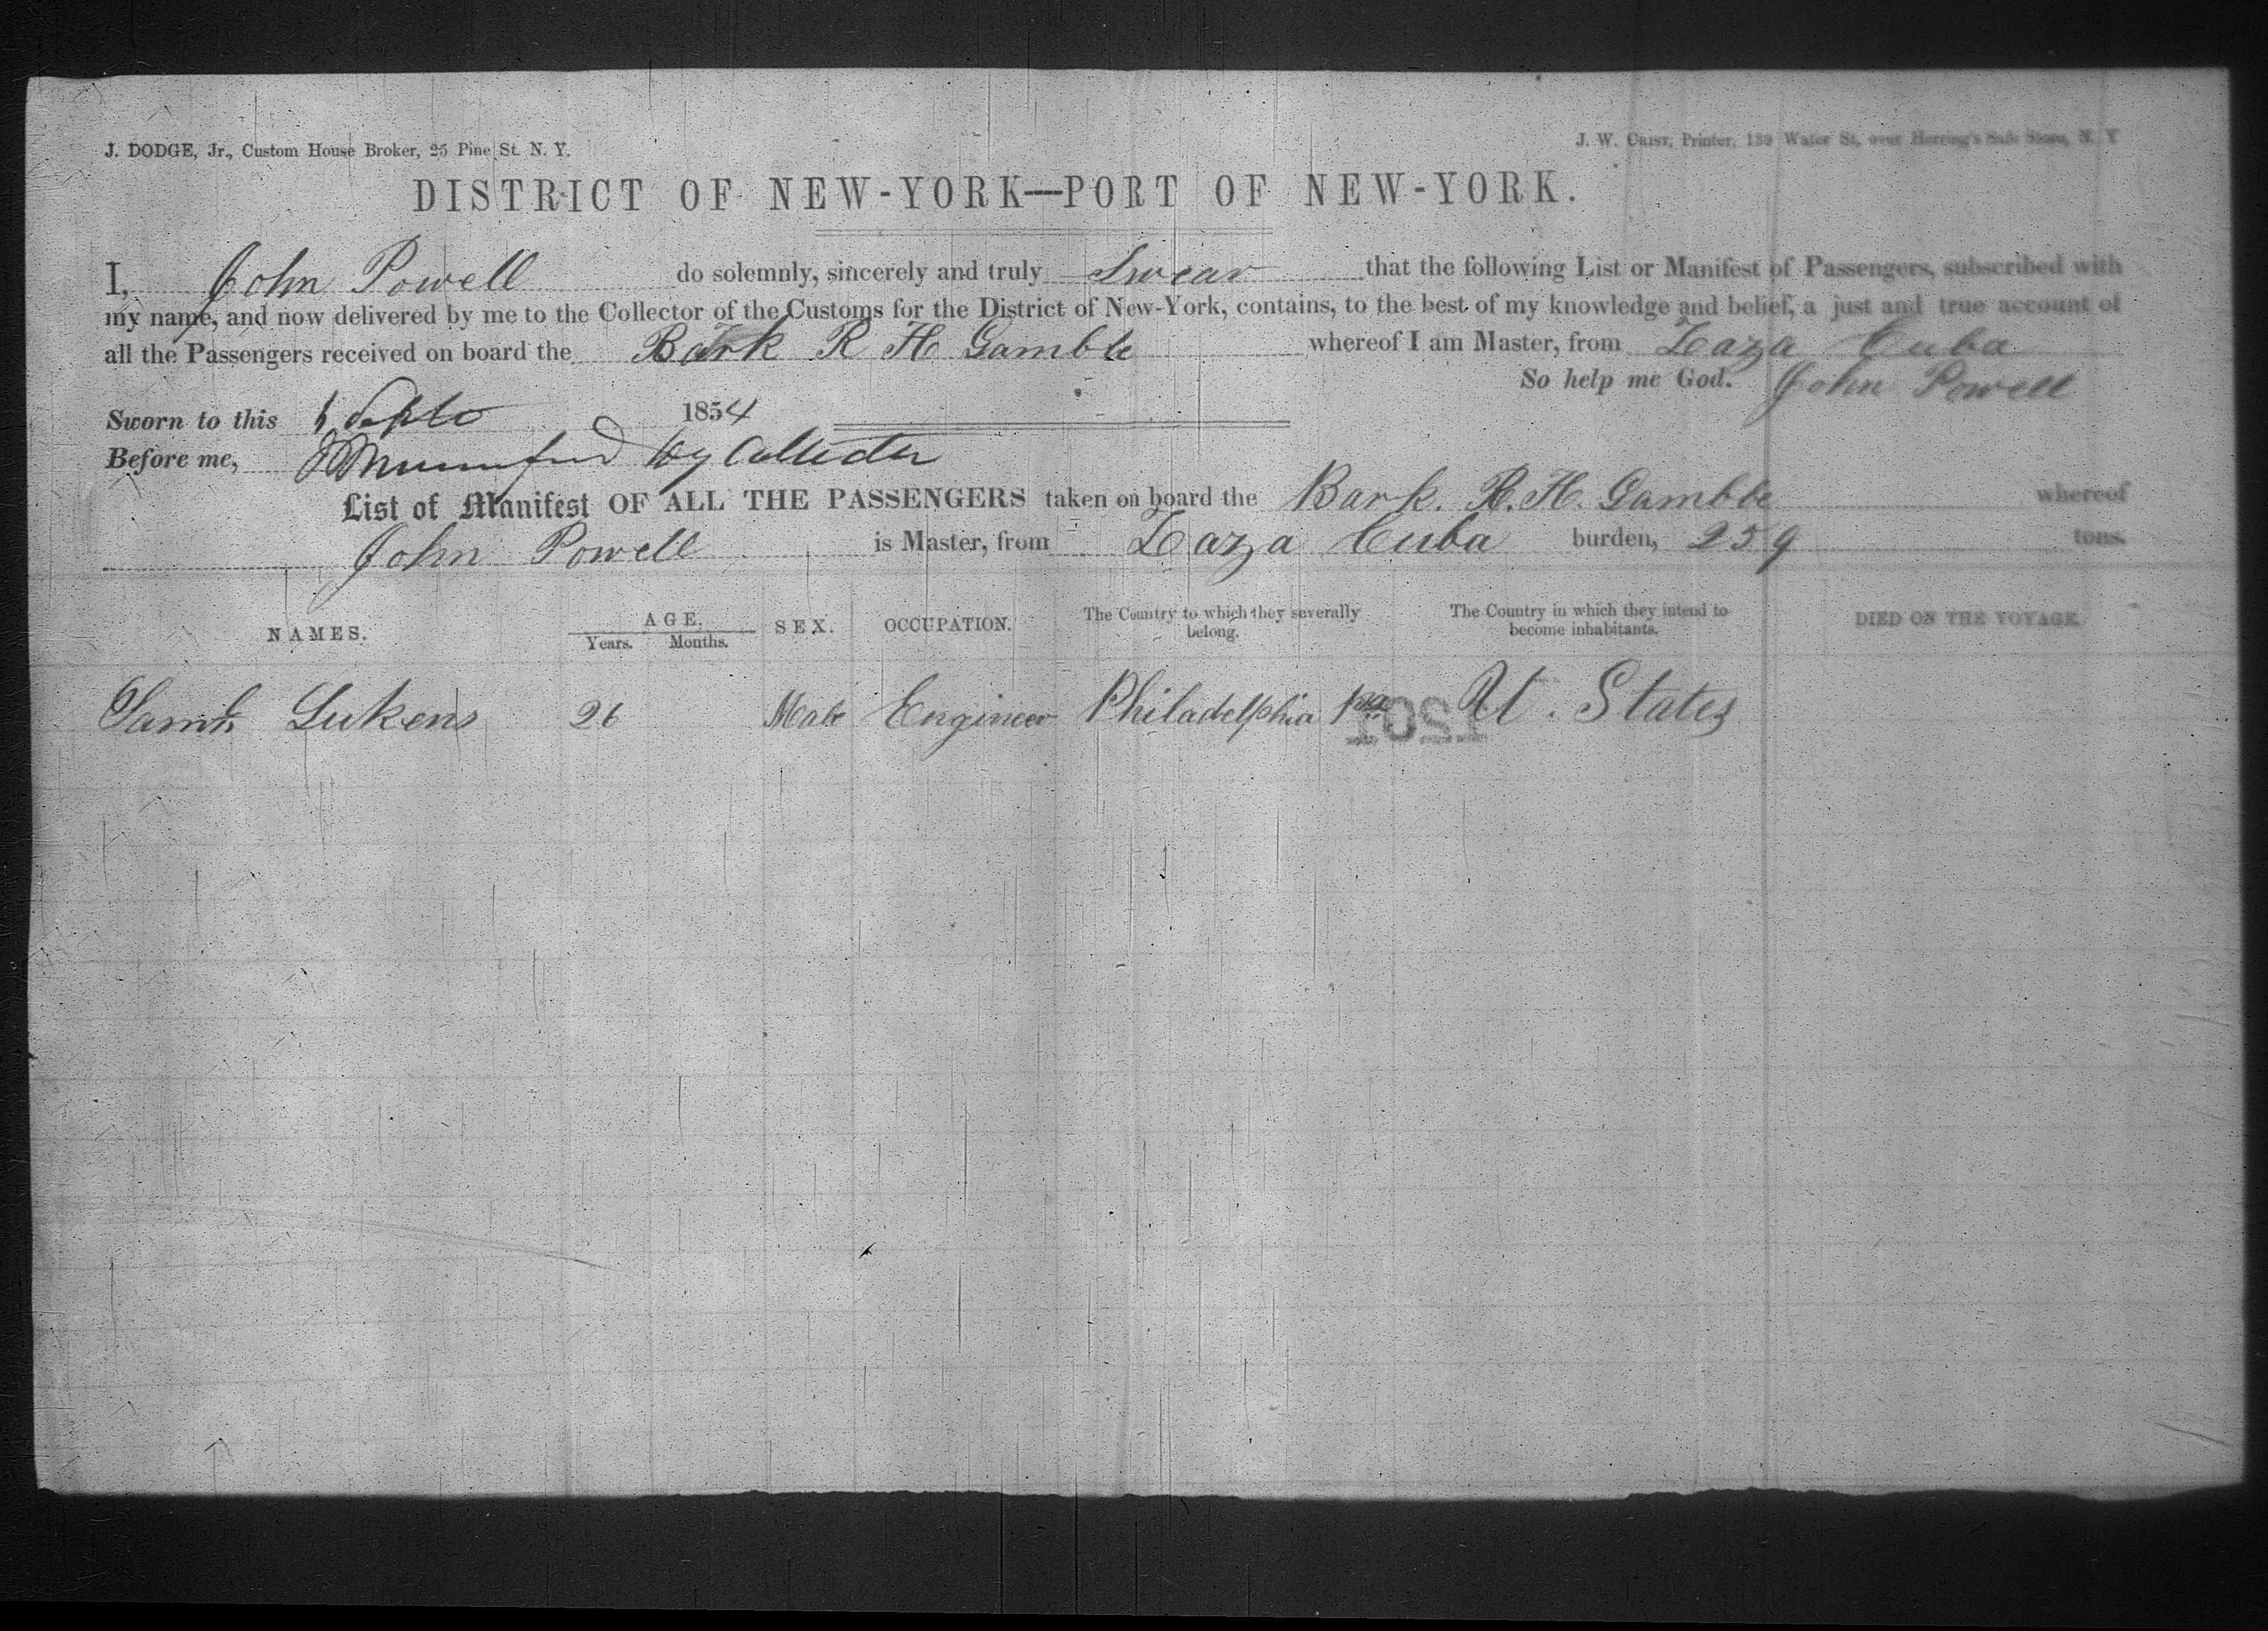 J. DODGE, Jr., Custom House Broker, 25 Pine St. N. Y.
J. W. Crist, Printer, 139 Water St, over Herring's Safe Store, N. Y
DISTRICT OF NEW-YORK—PORT OF NEW-YORK.
I, John Powell do solemnly, sincerely and truly Swear that the following List or Manifest of Passengers, subscribed with
my name, and now delivered by me to the Collector of the Customs for the District of New-York, contains, to the best of my knowledge and belief, a just and true account of
all the Passengers received on board the Bark R H Gamble whereof I am Master, from Zaza Cuba
So help me God. John Powell
Sworn to this Septe 1854
Before me, Mumford Collector
List of Manifest OF ALL THE PASSENGERS taken on board the Bark. R. H. Gamble whereof
John Powell is Master, from Zaza Cuba burden, 259 tons.
NAMES. AGE. SEX. OCCUPATION. The Country to which they severally belong. The Country in which they intend to become inhabitants. DIED ON THE VOYAGE
Years. Months.
Saml. Lukens 26 Male Engineer Philadelphia Pa U. States
1021